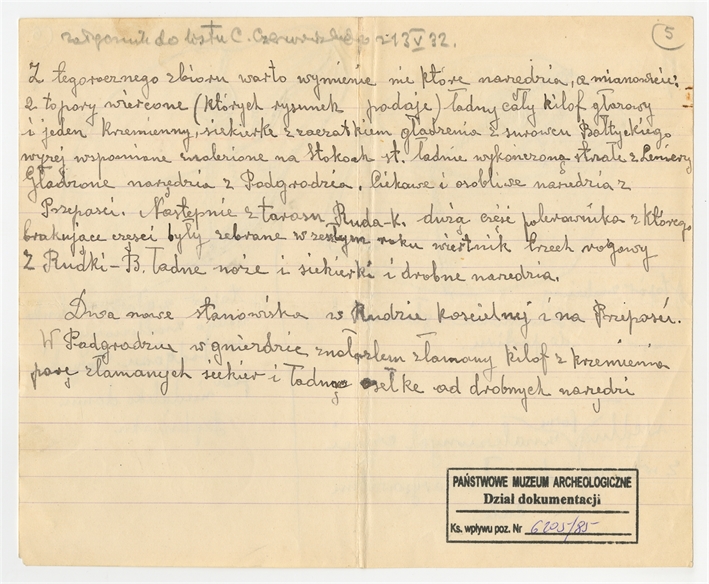 załącznik do listu C. z 13 V 32.
5
Z tegorocznego zbioru warto wymienie nie które narzędzia, a mianowicie:
2 topory wiercone (których rysunek podaje) ładny cały kilof głazowy
i jeden krzemienny, siekierke z zaczątkiem gładzenia z surowca Bałtyckiego
wyżej wspomiane znalezione na Stokach st. ładnie wykończoną strzałe z Lemierzy
Gładzone narzędzia z Podgrodzia. Ciekawe i osobliwe narzedzia z
Przepaści. Następnie z tarasu Ruda-K. dużą część polerownika z którego
brakujace częsci były zebrane w zeszłym roku wiertnik trzech rogowy
Z Rudki-B. ładne noże i siekierki i drobne narzędzia.
Dwa nowe stanowiska w Rudzie Kościelnej i na Przepaści.
W Podgrodziu w gnieździe znalazłem złamany kilof z krzemienia
parę złamanych siekier i ładną osełke od drobnych narzędzi
PAŃSTWOWE MUZEUM ARCHEOLOGICZNE
Dział dokumentacji
Ks. wpływu poz. Nr 6205/85